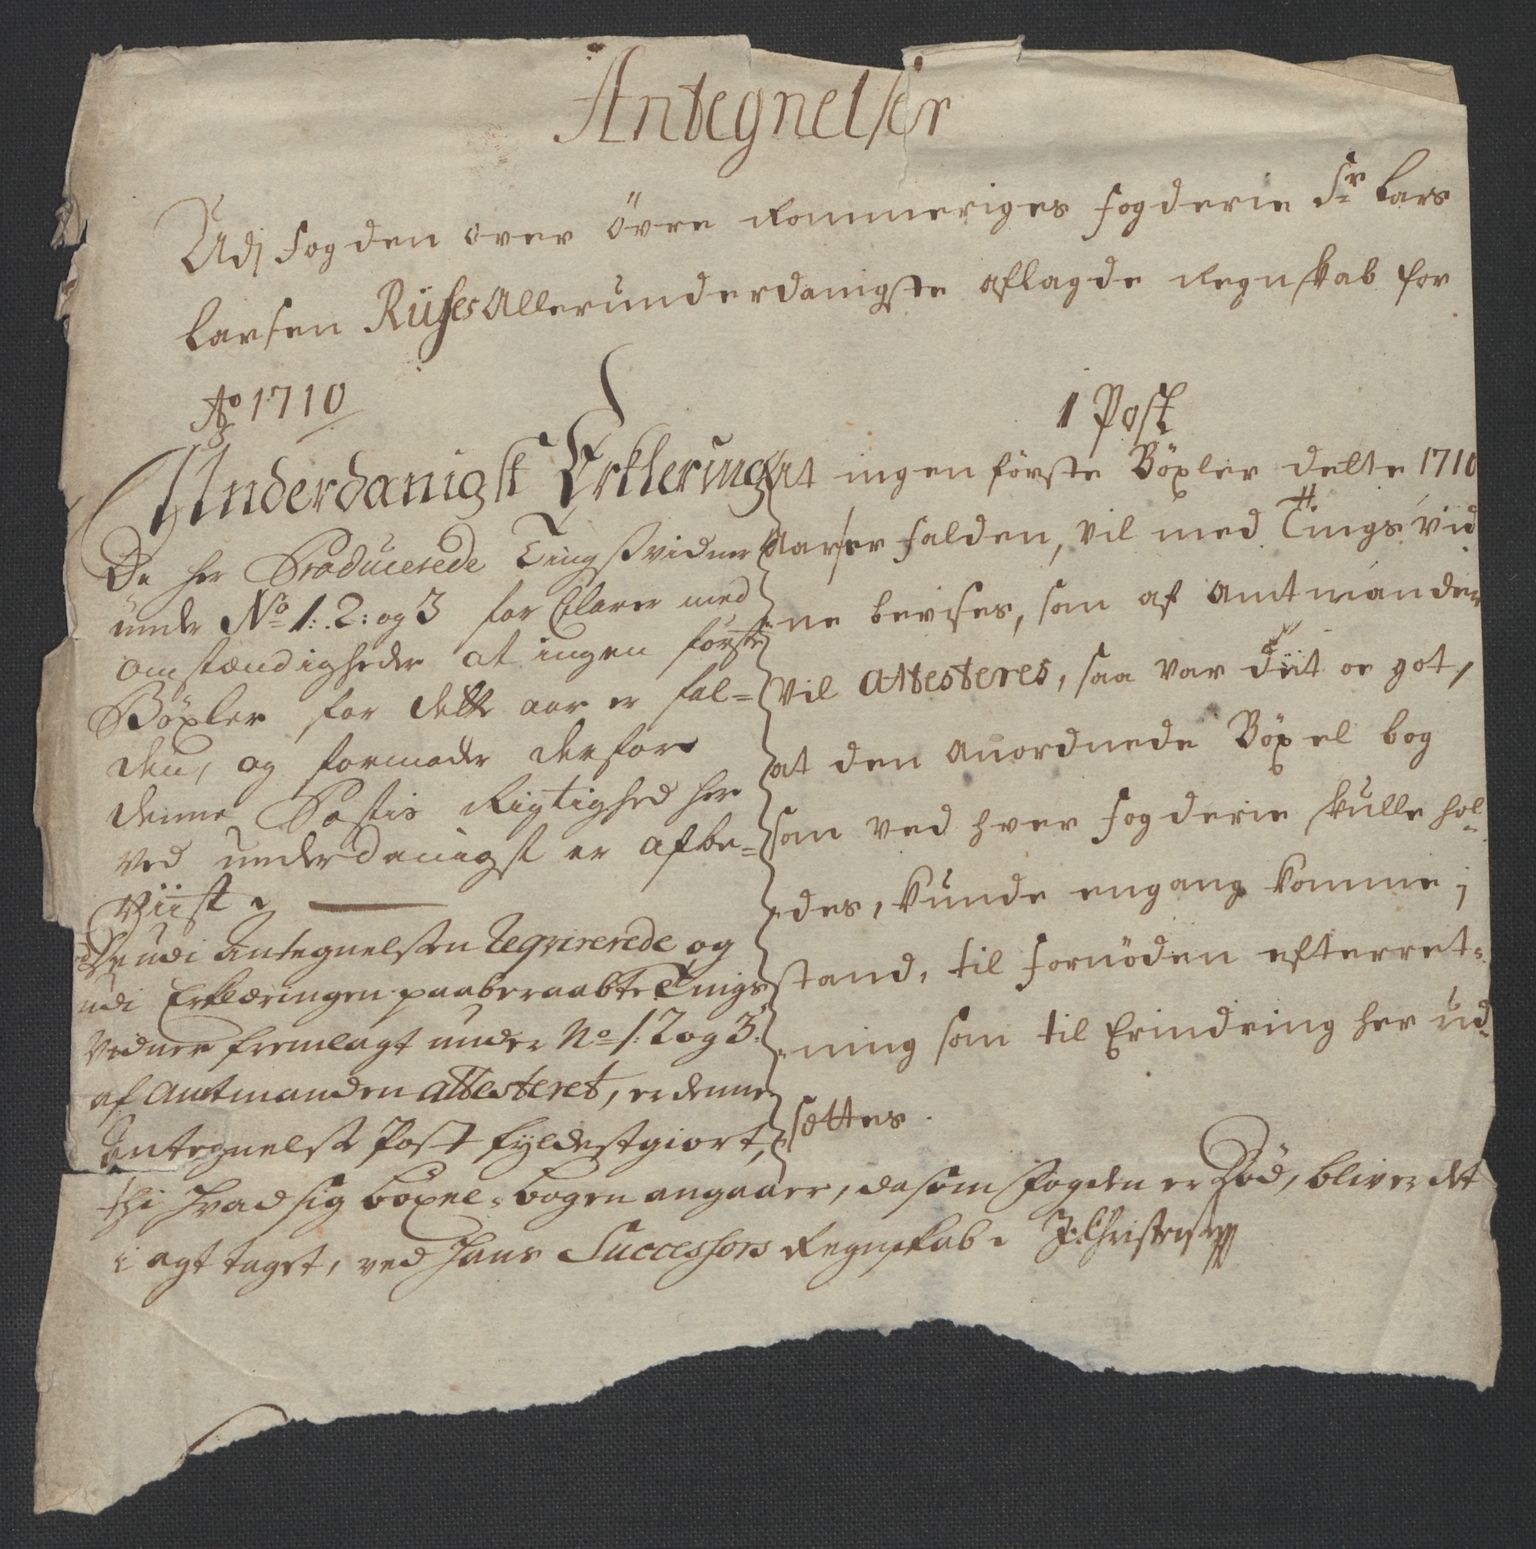 Antegnelser
Udj fogden over Öfre Rommeriges fogderie Sr Lars
Larsen Ruses allerunderdanigste aflagde Regnskab for
Ao 1710
1 Post
At ingen förste Böxler dette 1710
aar er falden, vil med Tings vid
ne bevises, som af amtmanden
vil attesteres, saa var det oc got,
at den anordnede Böxel bog
som ved hver fogderie skulle hol-
des, kunde engang komme j
stand, til fornöden efterret-
ning som til Erindring her ud-
settes.
Underdanigst Erklering
De her Producerede Tingsvidner
under No 1: 2: og 3 forclarer med
omstændigheder at ingen förste
Böxler for dette aar er fal-
den, og formoder derfore
denne Postis Rigtighed her
ved underdanigst er afbe-
viist.
De udi antegnelsen reqvirerede og
udi Erklæringen paaberaabte Tings
Vidner fremlagt under No 1: 2 og 3.
af Amtmanden attesteret, er denne
Antegnelse Post fyldestgiort,
thi hvad sig böxel-bogen angaaer, da som fogden er död, bliver det
i agt taget, ved hans Successors Regnskab. J: Christensen